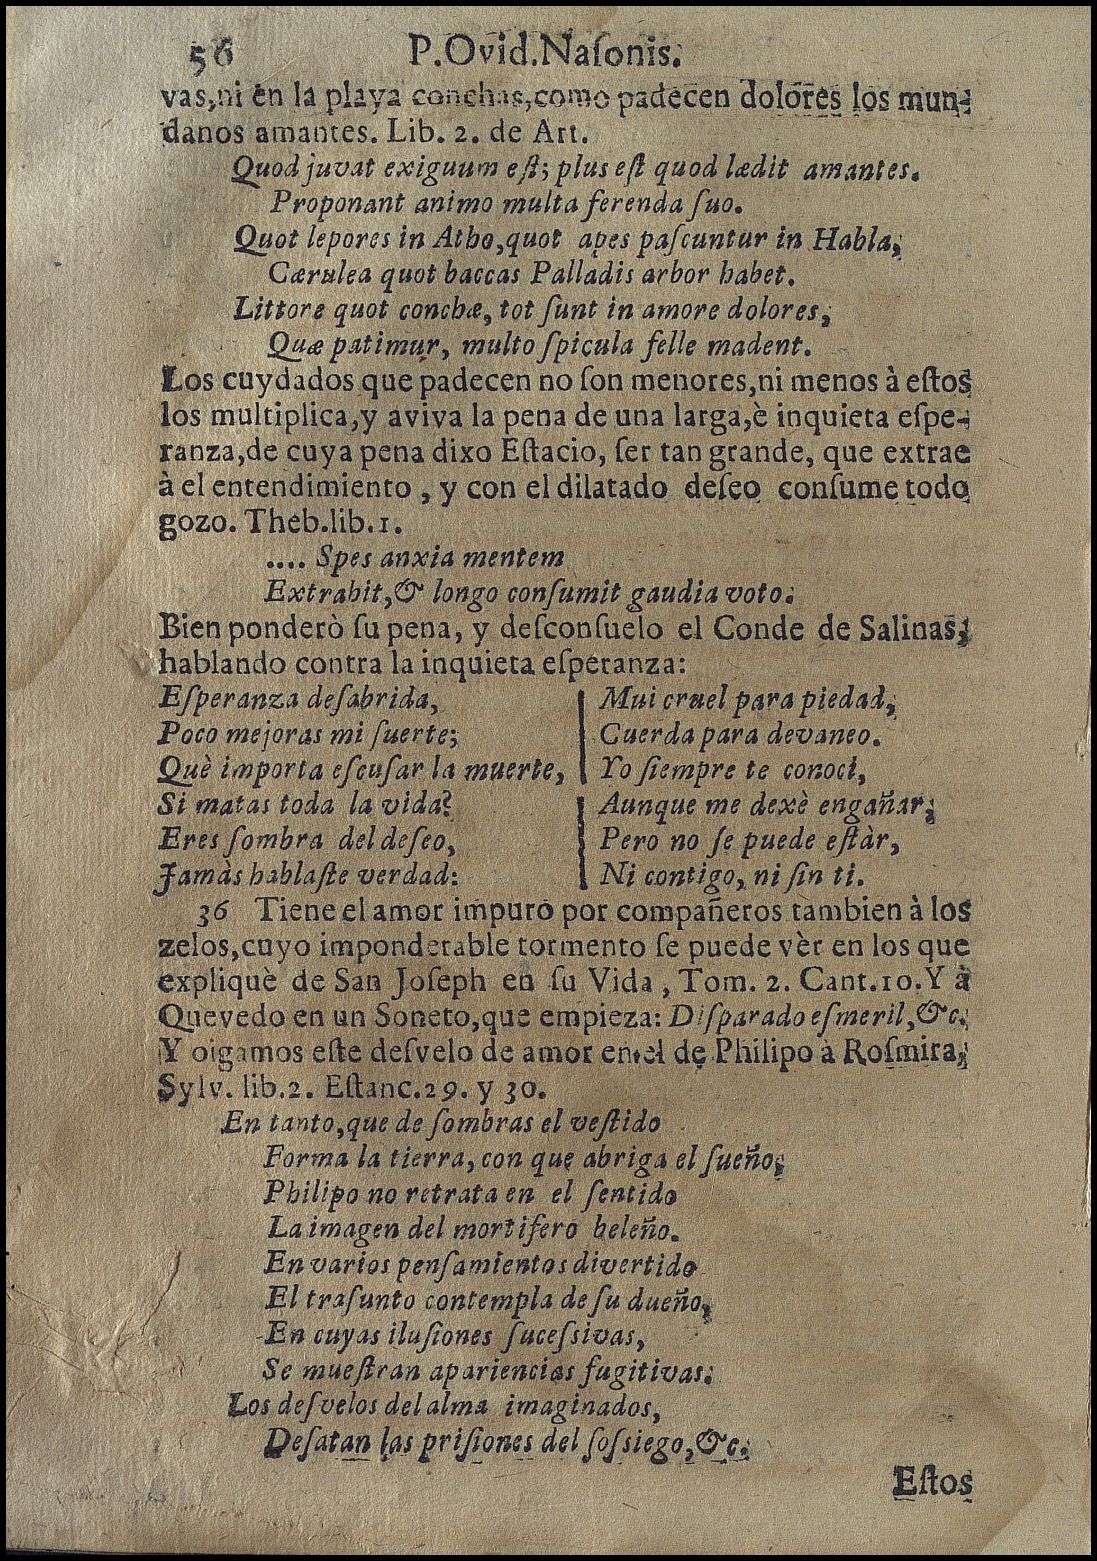 56 P.Ovid.Naſonis.
vas,ni en la playa conchas,como padecen dolores los mun-
danos amantes. Lib. 2. de Art.
Quod juvat exiguum eſt; plus eſt quod lædit amantes.
Proponant animo multa ferenda ſuo.
Quot lepores in Atho,quot apes paſcuntur in Habla,
Cærulea quot baccas Palladis arbor habet.
Littore quot conchæ, tot ſunt in amore dolores,
Quæ patimur, multo ſpicula felle madent.
Los cuydados que padecen no ſon menores,ni menos à eſtos
los multiplica,y aviva la pena de una larga,è inquieta eſpe-
ranza,de cuya pena dixo Eſtacio, ſer tan grande, que extrae
à el entendimiento, y con el dilatado deſeo conſume todo
gozo. Theb.lib.1.
.... Spes anxia mentem
Extrahit,& longo conſumit gaudia voto.
Bien ponderò ſu pena, y deſconſuelo el Conde de Salinas,
hablando contra la inquieta eſperanza:
Eſperanza deſabrida,
Poco mejoras mi ſuerte;
Què importa eſcuſar la muerte,
Si matas toda la vida?
Eres ſombra del deſeo,
Jamàs hablaſte verdad:
Mui cruel para piedad,
Cuerda para devaneo.
Yo ſiempre te conocì,
Aunque me dexè engañar,
Pero no ſe puede eſtàr,
Ni contigo, ni ſin ti.
36 Tiene el amor impuro por compañeros tambien à los
zelos,cuyo imponderable tormento ſe puede vèr en los que
expliquè de San Joſeph en ſu Vida, Tom. 2. Cant.10. Y à
Quevedo en un Soneto,que empieza: Diſparado eſmeril,&c.
Y oigamos eſte deſvelo de amor en el de Philipo à Roſmira,
Sylv. lib.2. Eſtanc.29. y 30.
En tanto,que de ſombras el veſtido
Forma la tierra, con que abriga el ſueño,
Philipo no retrata en el ſentido
La imagen del mortifero beleño.
En varios penſamientos divertido
El traſunto contempla de ſu dueño,
En cuyas iluſiones ſuceſsivas,
Se mueſtran apariencias fugitivas.
Los deſvelos del alma imaginados,
Deſatan las priſiones del ſoſsiego,&c.
Eſtos